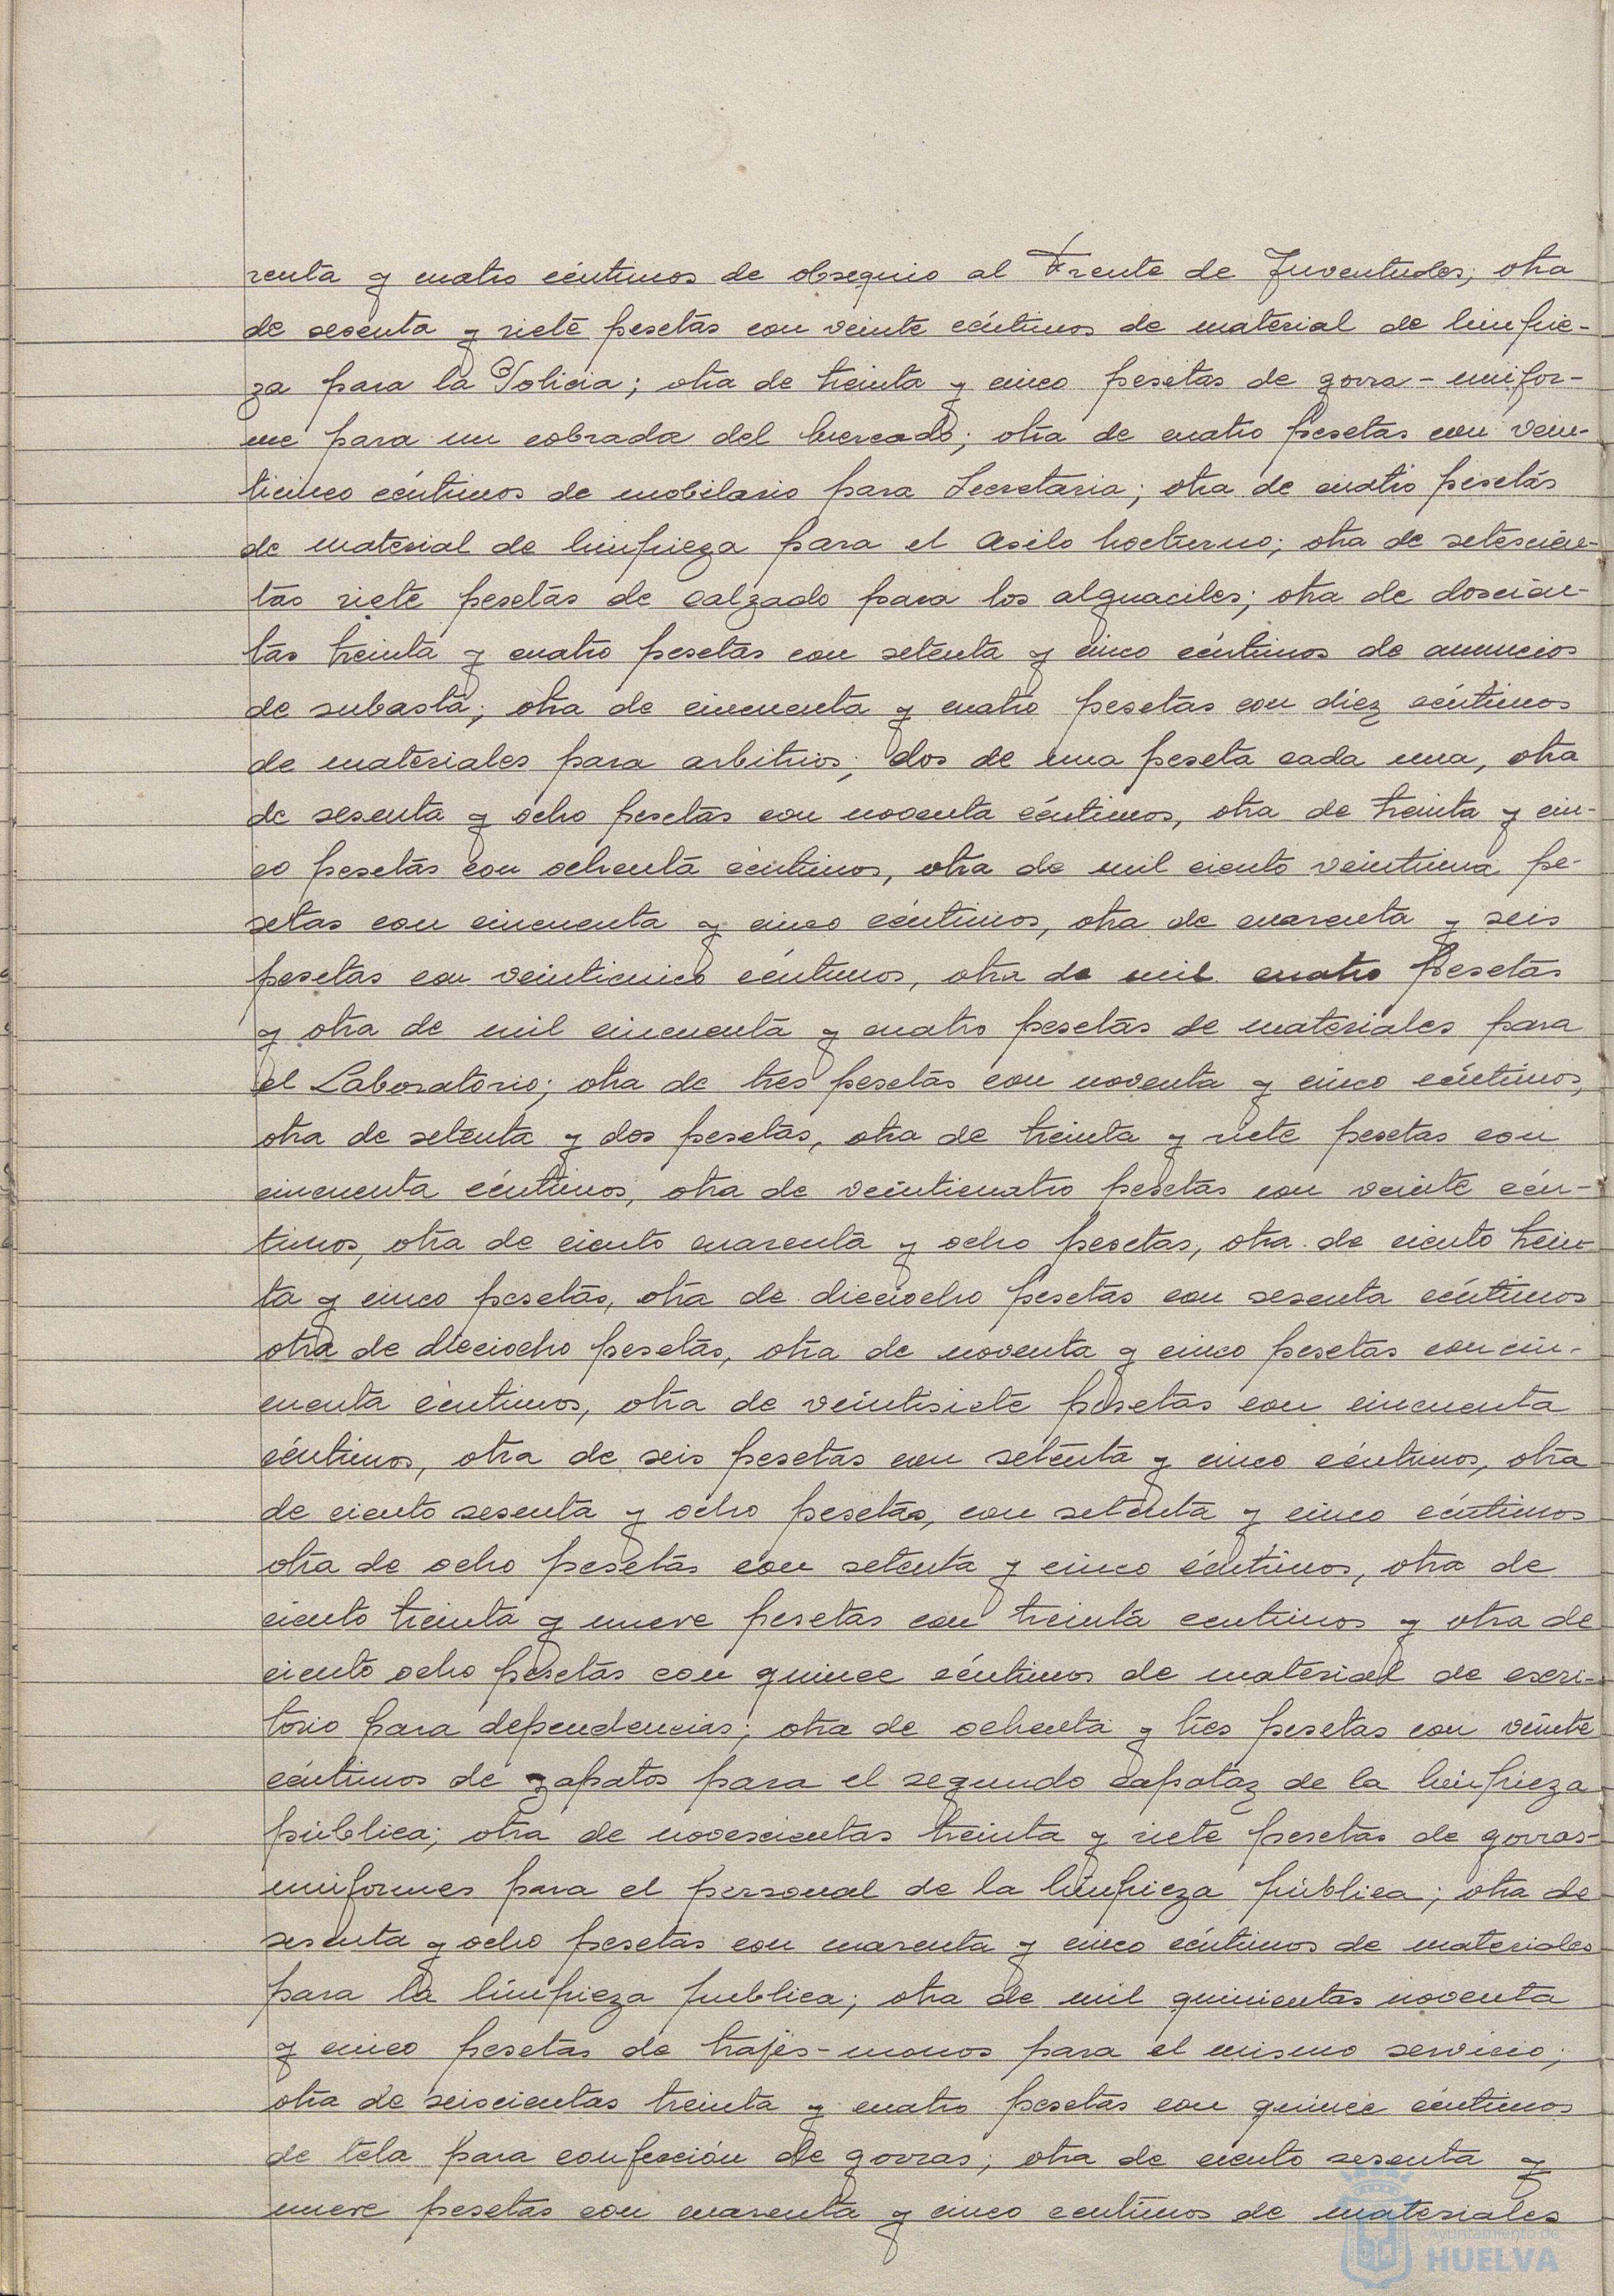 renta y cuatro céntimos de obsequio al Frente de Juventudes; otra
de sesenta y siete pesetas con veinte céntimos de material de limpie-
za para la Policia; otra de treinta y cinco pesetas de gorra-unifor-
me para un cobrador del Mercado; otra de cuatro pesetas con vein-
ticinco céntimos de mobilario para Secretaria; otra de cuatro pesetas
de material de limpieza para el Asilo Nocturno; otra de setescien-
tas siete pesetas de calzado para los alguaciles; otra de doscien-
tas treinta y cuatro pesetas con setenta y cinco céntimos de anuncios
de subasta; otra de cincuenta y cuatro pesetas con diez céntimos
de materiales para arbitrios; dos de una peseta cada una, otra
de sesenta y ocho pesetas con noventa céntimos, otra de treinta y cin-
co pesetas con ochenta céntimos, otra de mil ciento veintiuna pe-
setas con cincuenta y cinco céntimos, otra de cuarenta y seis
pesetas con veinticinco céntimos, otra de mil cuatro pesetas
y otra de mil cincuenta y cuatro pesetas de materiales para
el Laboratorio; otra de tres pesetas con noventa y cinco céntimos,
otra de setenta y dos pesetas, otra de treinta y siete pesetas con
cincuenta céntimos, otra de veinticuatro pesetas con veinte cén-
timos, otra de ciento cuarenta y ocho pesetas, otra de ciento trein-
ta y cinco pesetas, otra de dieciocho pesetas con sesenta céntimos
otra de dieciocho pesetas, otra de noventa y cinco pesetas con cin-
cuenta céntimos, otra de veintisiete pesetas con cincuenta
céntimos, otra de seis pesetas con setenta y cinco céntimos, otra
de ciento sesenta y ocho pesetas, con setenta y cinco céntimos
otra de ocho pesetas con setenta y cinco céntimos, otra de
ciento treinta y nueve pesetas con treinta centimos y otra de
ciento ocho pesetas con quince céntimos de material de escri-
torio para dependencias; otra de ochenta y tres pesetas con veinte
céntimos de zapatos para el segundo capataz de la limpieza
pública; otra de novescientas treinta y siete pesetas de gorras-
uniformes para el personal de la limpieza pública; otra de
sesenta y ocho pesetas con cuarenta y cinco céntimos de materiales
para la limpieza publica; otra de mil quinientas noventa
y cinco pesetas de trajes-monos para el mismo servicio;
otra de seiscientas treinta y cuatro pesetas con quince céntimos
de tela para confección de gorras; otra de ciento sesenta y
nueve pesetas con cuarenta y cinco centimos de materiales
Ayuntamiento de
HUELVA